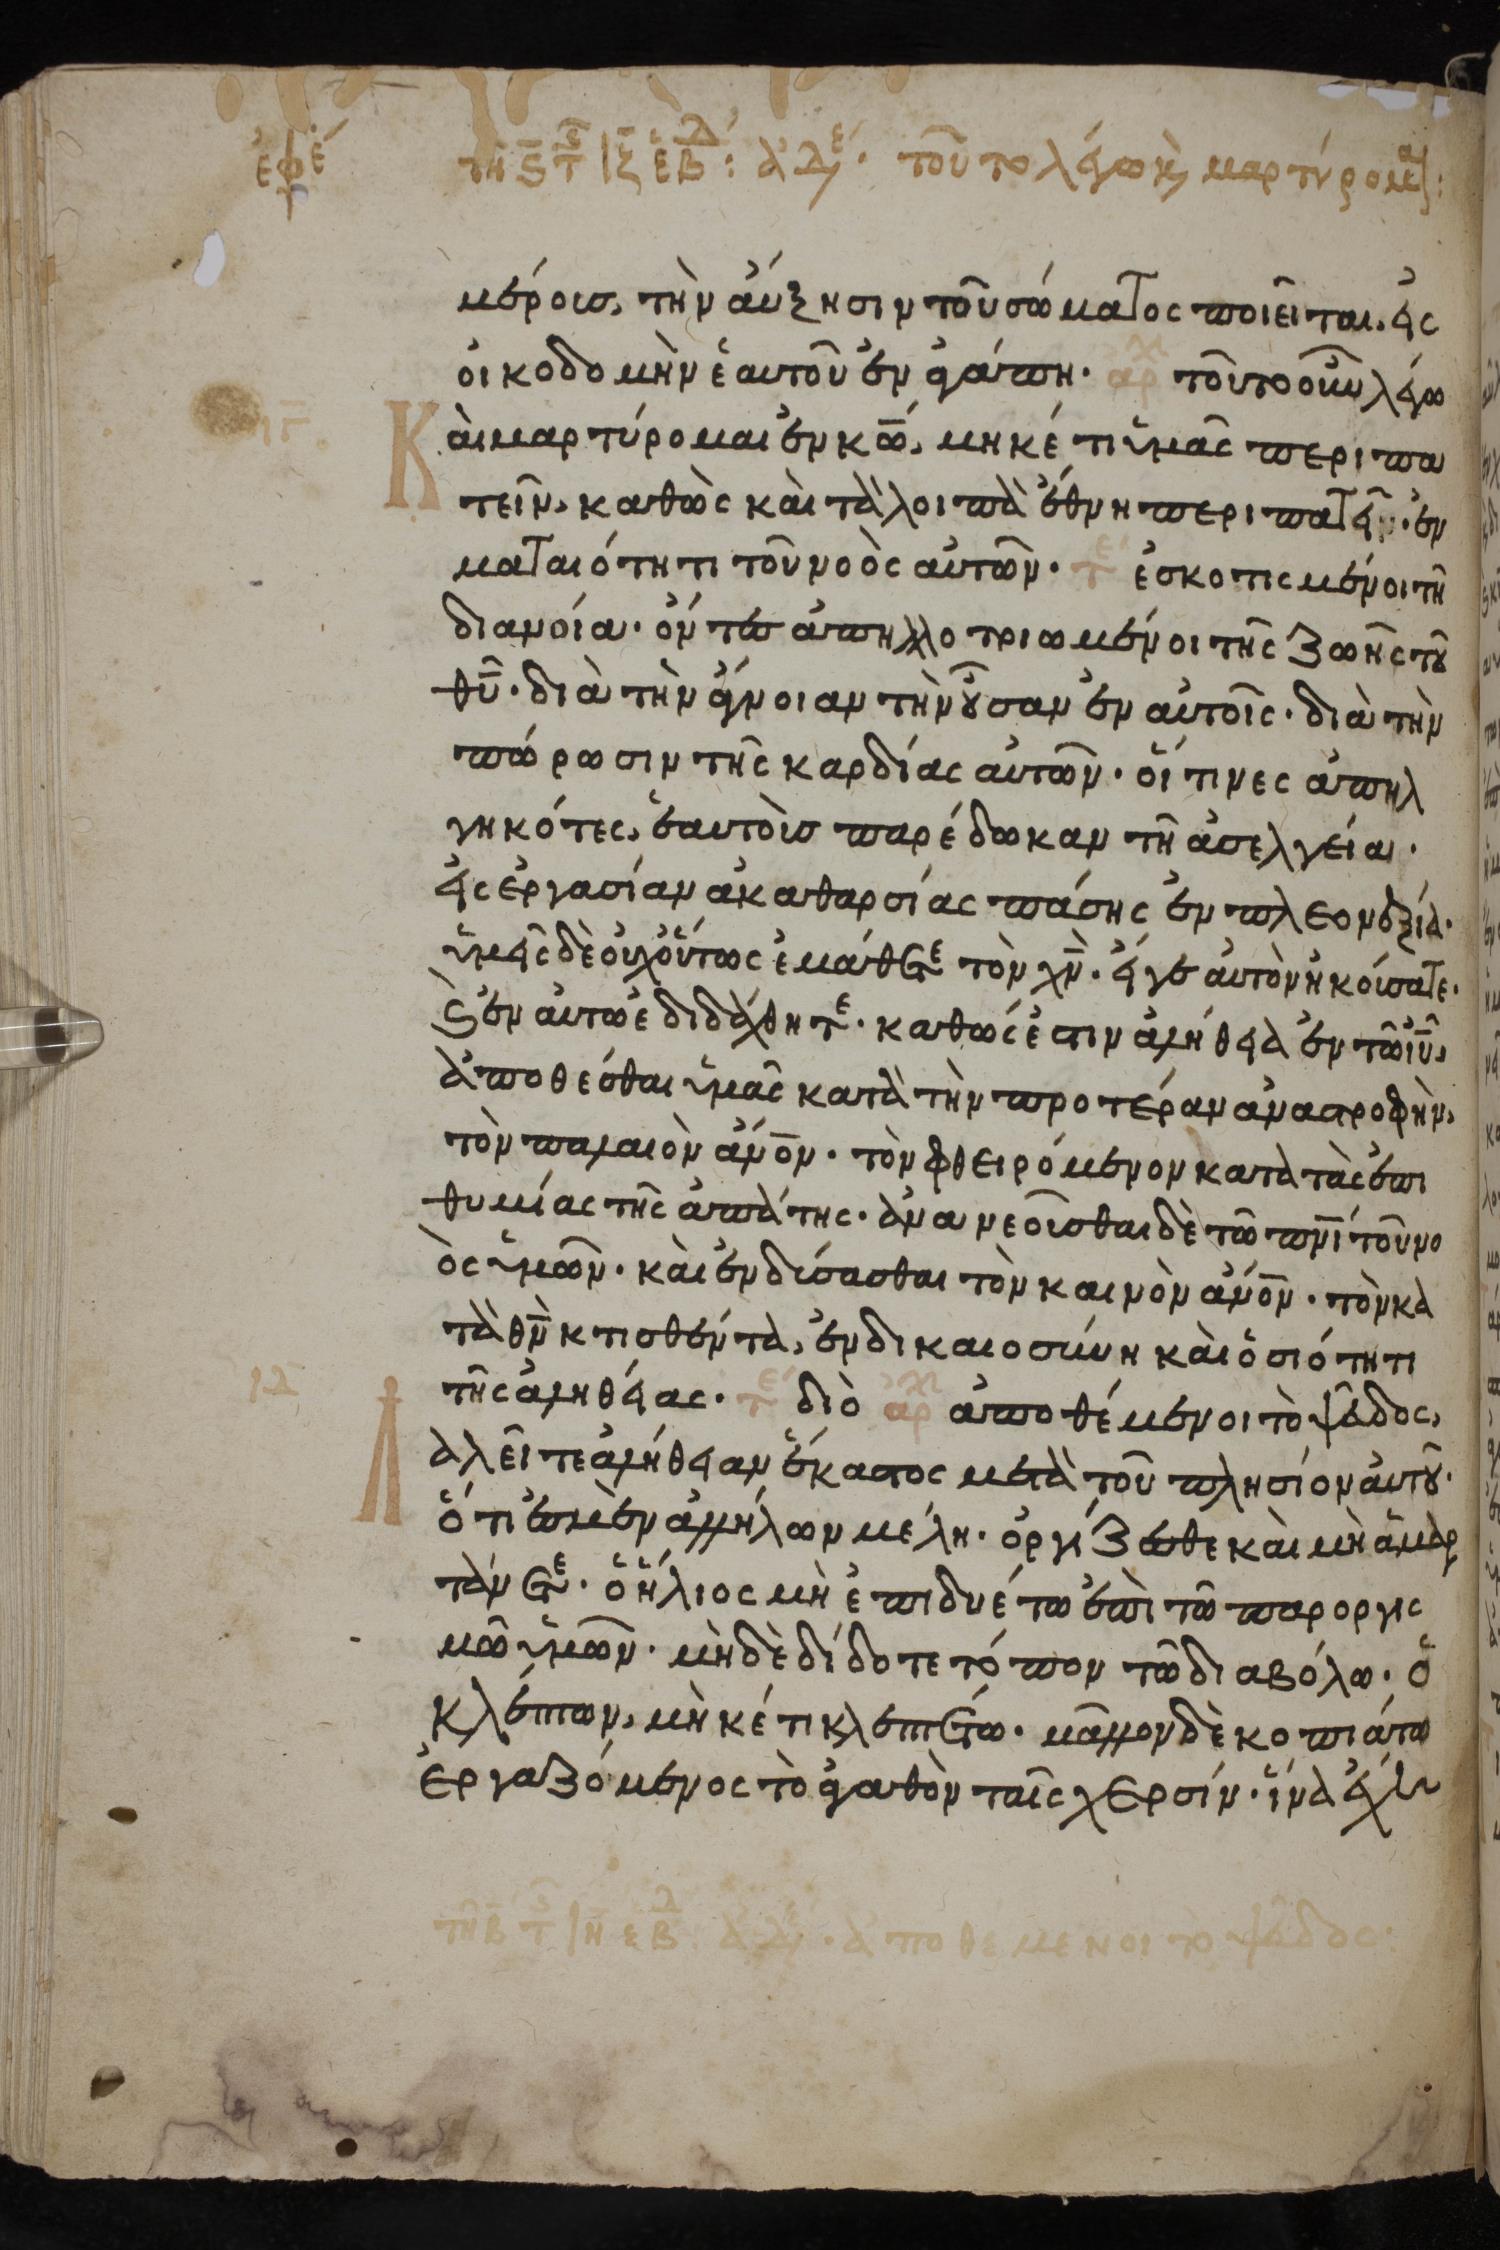 ἐφέ τῆ ς̄ τ̄ ιζ ἑβδ: ἀδε. τοῦτο λέγω κ(αὶ) μαρτύρομαι:
μέρους, τὴν ἀύξησιν τοῦ σώματος ποιεῖται. εἰς
οἰκοδομὴν ἑαυτοῦ ἐν ἀγάπη. ἀρχ τοῦτο οὖν λέγω
Κὰι μαρτύρομαι ἐν κω̄, μηκέτι ὑμᾶς περιπα
τεῖν, καθὼς κὰι τὰ λοιπὰ ἔθνη περιπατεῖ. ἐν
ματαιότητι τοῦ νοὸς αὐτῶν. τε ἐσκοτισμένοι τῆ
διανοία. ὄντες ἀπηλλοτριωμένοι τῆς ζωῆς τοῦ
θῦ. διὰ τὴν ἄγνοιαν τὴν οὖσαν ἐν αὐτοῖς. διὰ τὴν
πώρωσιν τῆς καρδίας αὐτῶν. ὅιτινες ἀπηλ
γηκότες, ἑαυτοὺς παρέδωκαν τῆ ἀσελγεία.
εἰς ἐργασίαν ἀκαθαρσίας πάσης ἐν πλεονεξία.
ὑμεῖς δὲ οὐχ οὕτως ἐμάθετε τὸν χν̄. εἴγε αὐτὸν ἠκούσατε.
κ(αὶ) ἐν αὐτῶ ἐδιδάχθητε. καθώς ἐστιν ἀλήθεια ἐν τῶ ἰῦ,
ἀποθέσθαι ὑμᾶς κατὰ τὴν προτέραν ἀναστροφὴν,
τὸν παλαιὸν ἄνον. τὸν φθειρόμενον κατὰ τὰς ἐπι
θυμίας τῆς ἀπάτης. ἀνανεοῦσθαι δὲ τῶ πνῑ τοῦ νο
ὸς ὑμῶν. κὰι ἐνδύσασθαι τὸν καινὸν ἄνον. τὸν κα
τὰ θν̄ κτισθέντα, ἐν δικαιοσύνη κὰι ὁσιότητι
τῆς ἀληθείας. τε διὸ ἀρχ ἀποθέμενοι τὸ ψεῦδος,
Λαλεῖτε ἀλήθειαν ἕκαστος μετὰ τοῦ πλησίον αὐτοῦ.
ὅτι ἐσμὲν ἀλλήλων μέλη. ὀργίζεσθε κὰι μὴ ἁμαρ
τάνετε. ὁ ἥλιος μὴ ἐπιδυέτω ἐπὶ τῶ παροργισ
μῶ ὑμῶν. μὴδὲ δίδοτε τόπον τῶ διαβόλω. ὁ
κλέπτων, μὴκέτι κλεπτέτω. μᾶλλον δὲ κοπιάτω
ἐργαζόμενος τὸ ἀγαθὸν ταῖς χερσίν. ἵνα ἔχει
τῆ β τ̄ ιη ἑβδ: ἀδε. ἀποθέμενοι τὸ ψεῦδος: